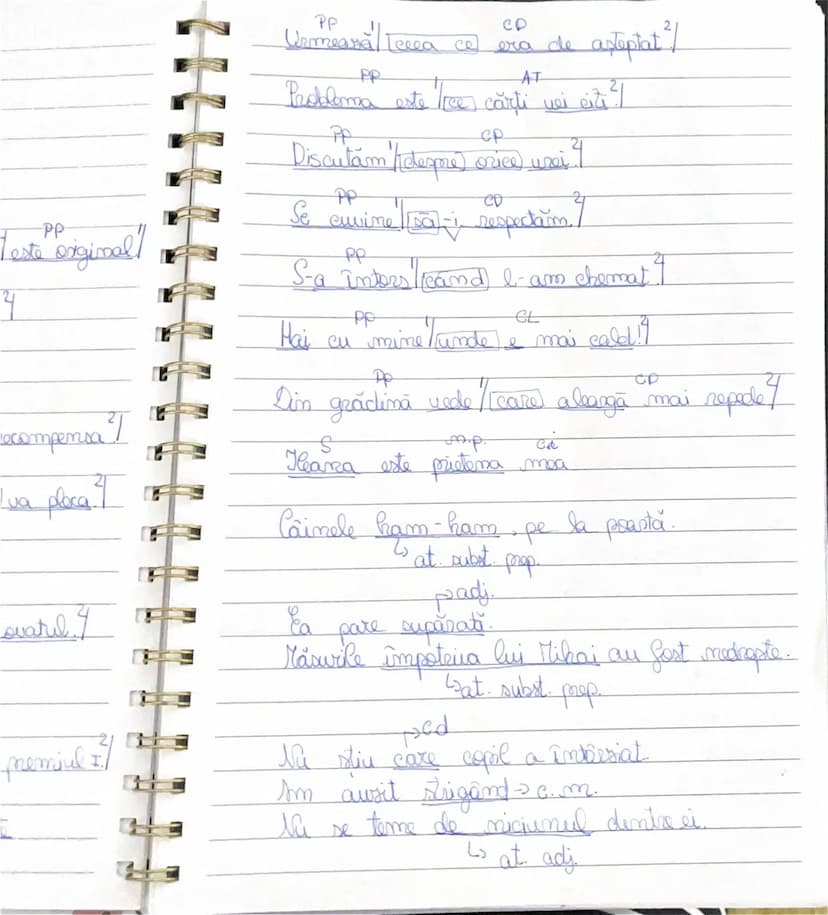 PP CD
Urmează/¹ ceea ce era de aşteptat.²/
PP AT
Problema este/¹ ce cărţi vei citi.²/
PP CP
Discutăm/¹ despre orice vrei.²/
PP CD
Se cuvine/¹ să-i respectăm.²/
PP
S-a întors/¹ când l-am chemat.²/
PP CL
Hai cu mine/¹ unde e mai cald!²/
PP CD
Din grădină vede/¹ care aleargă mai repede.²/
S n.p.
Ileana este prietena mea
Câinele ham-ham, pe la poartă.
↳ at. subst. prep.
adj.
Ea pare supărată.
Măsurile împotriva lui Mihai au fost nedrepte.
↳ at. subst. prep.
cd
Nu ştiu care copil a întârziat.
Am auzit strigând → c.m.
Nu se teme de niciunul dintre ei.
↳ at. adj.
PP
este original/¹
2/
recompensa²/
va pleca.²/
2/
premiul I.²/